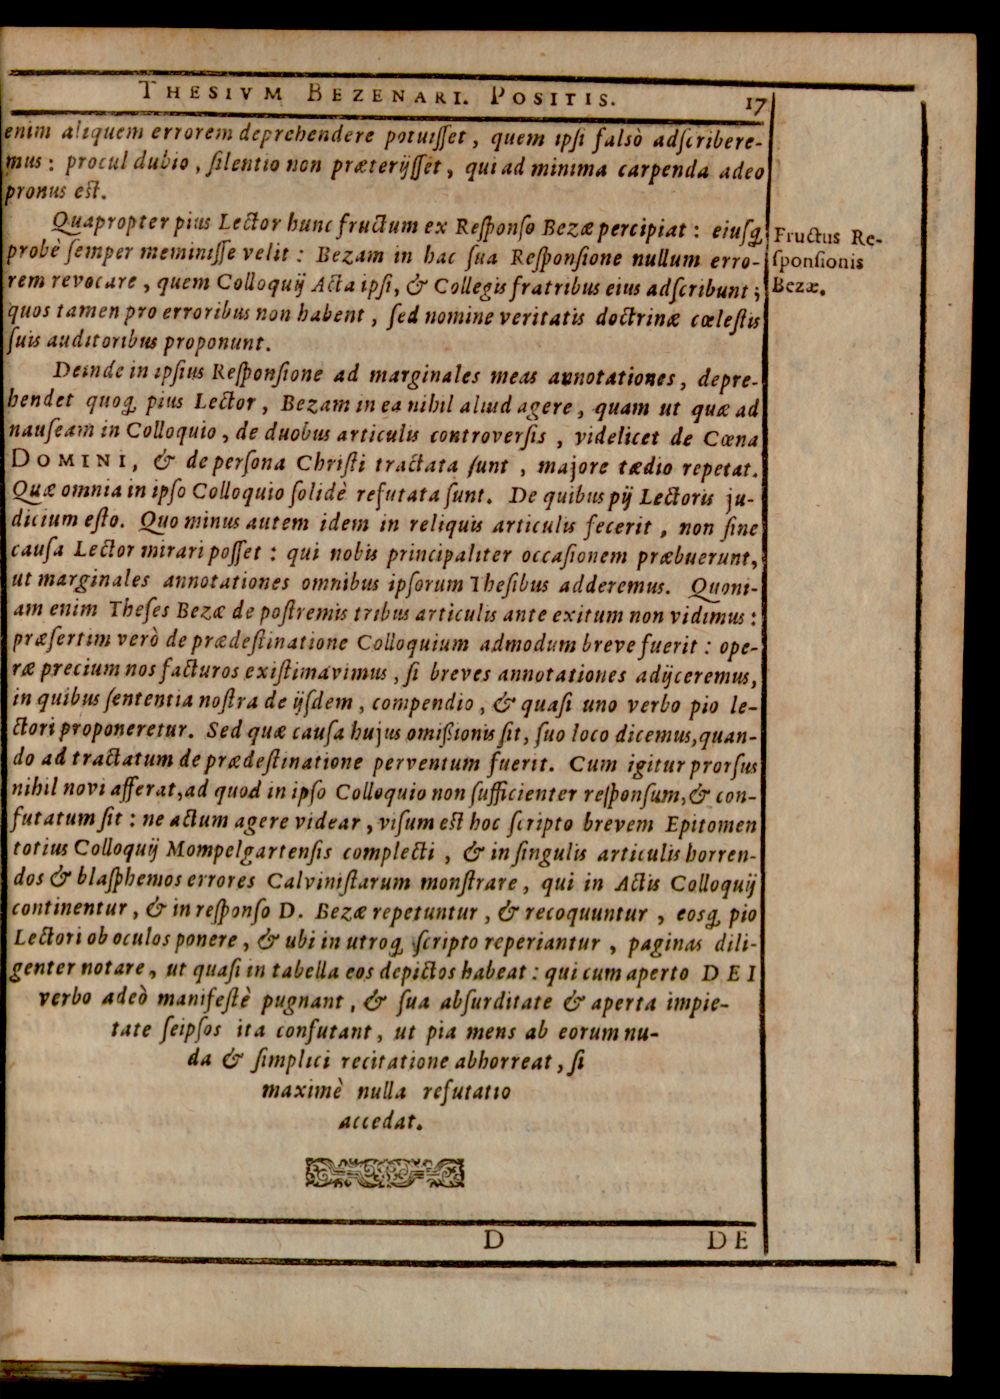 THESIVM BEZENARI. POSITIS. 17
enim aliquem errorem deprehendere potuiſſet, quem ipſi falsò adſcribere-
mus: procul dubio, ſilentio non præterijſſet, qui ad minima carpenda adeo
pronus eſt.
Quapropter pius Lector hunc fructum ex Reſponſo Bezæ percipiat: eiuſq́;
probè ſemper meminiſſe velit: Bezam in hac ſua Reſponſione nullum erro-
rem revocare, quem Colloquij Acta ipſi, & Collegis fratribus eius adſcribunt;
quos tamen pro erroribus non habent, ſed nomine veritatis doctrinæ cœleſtis
ſuis auditoribus proponunt.
Fructus Re-
ſponſionis
Bezæ.
Deinde in ipſius Reſponſione ad marginales meas annotationes, depre-
hendet quoq́; pius Lector, Bezam in ea nihil aliud agere, quam ut quæ ad
nauſeam in Colloquio, de duobus articulis controverſis, videlicet de Cœna
DOMINI, & de perſona Chriſti tractata ſunt, majore tædio repetat.
Quæ omnia in ipſo Colloquio ſolidè refutata ſunt. De quibus pij Lectoris ju-
dicium eſto. Quo minus autem idem in reliquis articulis fecerit, non ſine
cauſa Lector mirari poſſet: qui nobis principaliter occaſionem præbuerunt,
ut marginales annotationes omnibus ipſorum Theſibus adderemus. Quoni-
am enim Theſes Bezæ de poſtremis tribus articulis ante exitum non vidimus:
præſertim verò de prædeſtinatione Colloquium admodum breve fuerit: ope-
ræ precium nos facturos exiſtimavimus, ſi breves annotationes adijceremus,
in quibus ſententia noſtra de ijſdem, compendio, & quaſi uno verbo pio le-
ctori proponeretur. Sed quæ cauſa hujus omißionis ſit, ſuo loco dicemus, quan-
do ad tractatum de prædeſtinatione perventum fuerit. Cum igitur prorſus
nihil novi afferat, ad quod in ipſo Colloquio non ſufficienter reſponſum, & con-
futatum ſit: ne actum agere videar, viſum eſt hoc ſcripto brevem Epitomen
totius Colloquij Mompelgartenſis complecti, & in ſingulis articulis horren-
dos & blaſphemos errores Calviniſtarum monſtrare, qui in Actis Colloquij
continentur, & in reſponſo D. Bezæ repetuntur, & recoquuntur, eosq́; pio
Lectori ob oculos ponere, & ubi in utroq́; ſcripto reperiantur, paginas dili-
genter notare, ut quaſi in tabella eos depictos habeat: qui cum aperto DEI
verbo adeò manifeſtè pugnant, & ſua abſurditate & aperta impie-
tate ſeipſos ita confutant, ut pia mens ab eorum nu-
da & ſimplici recitatione abhorreat, ſi
maximè nulla refutatio
accedat.
D DE